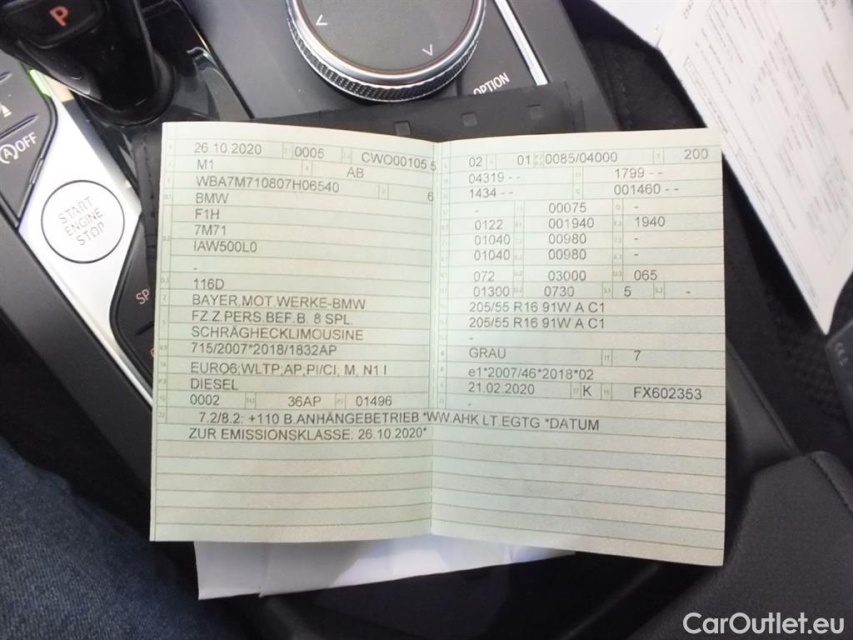 P
OPTION
(A)OFF
START
ENGINE
STOP
SP
26.10.2020 0005 CWO00105 5
M1 AB
WBA7M710807H06540 6
BMW
F1H
7M71
IAW500L0
-
116D
BAYER.MOT.WERKE-BMW
FZ.Z.PERS.BEF.B. 8 SPL.
SCHRÄGHECKLIMOUSINE
715/2007*2018/1832AP
EURO6;WLTP;AP;PI/CI, M, N1 I
DIESEL
0002 36AP 01496
7.2/8.2: +110 B.ANHÄNGEBETRIEB *WW.AHK LT.EGTG *DATUM
ZUR EMISSIONSKLASSE: 26.10.2020*
02 01 0085/04000 200
04319 -- 1799 --
1434 -- 001460 --
- 00075 -
0122 001940 1940
01040 00980
01040 00980
072 03000 065
01300 0730 5 -
205/55 R16 91W A C1
205/55 R16 91W A C1
GRAU 7
e1*2007/46*2018*02
21.02.2020 K FX602353
CarOutlet.eu